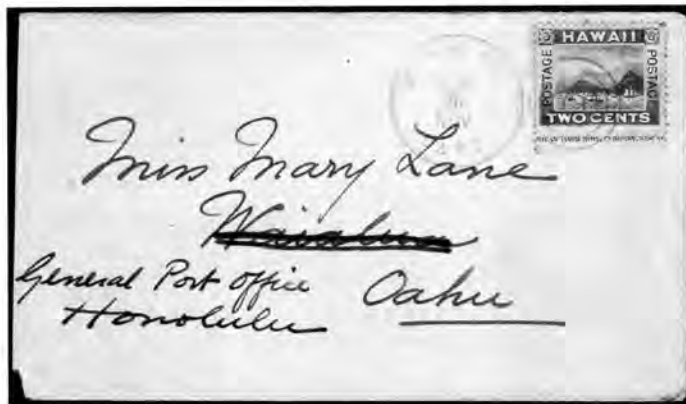 HAWAII
POSTAGE
POSTAG
TWO CENTS
Miss Mary Lane
Waialua
General Post Office
Honolulu
Oahu